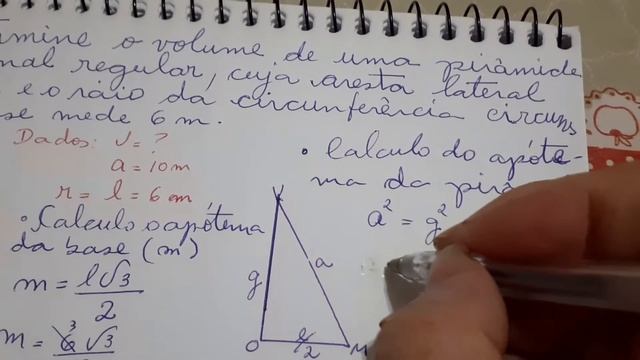 mine o volume de uma pirâmide
nal regular, cuja aresta lateral
e o raio da circunferência circuns
se mede 6 m.
Dados: V = ?
a = 10 m
r = l = 6 m
• Calculo do apóte-
ma da
a² = g²
• Calculo o apótema
da base (m)
m = l√3
2
m = 6 3 √3
g
a
O
2
M